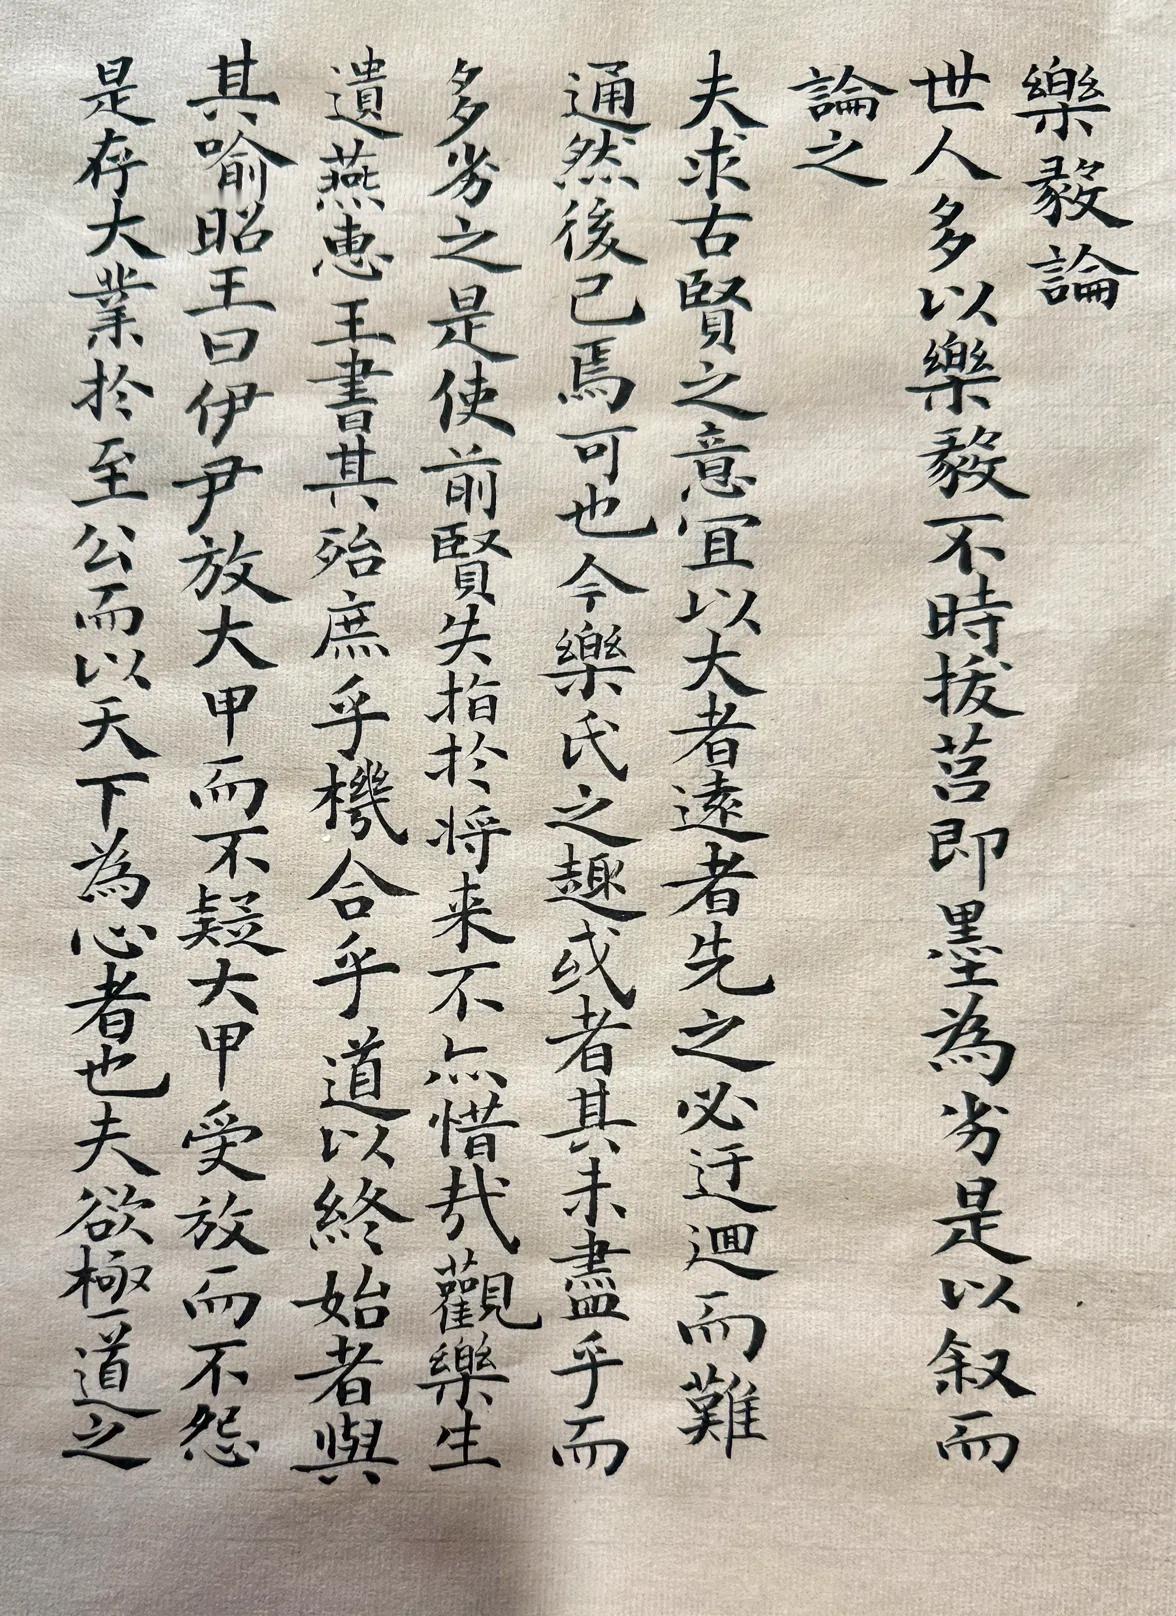 樂毅論
世人多以樂毅不時拔莒即墨為劣是以叙而
論之
夫求古賢之意宜以大者遠者先之必迂迴而難
通然後已焉可也今樂氏之趣或者其未盡乎而
多劣之是使前賢失指於将来不亦惜哉觀樂生
遺燕惠王書其殆庶乎機合乎道以終始者與
其喻昭王曰伊尹放大甲而不疑大甲受放而不怨
是存大業於至公而以天下為心者也夫欲極道之